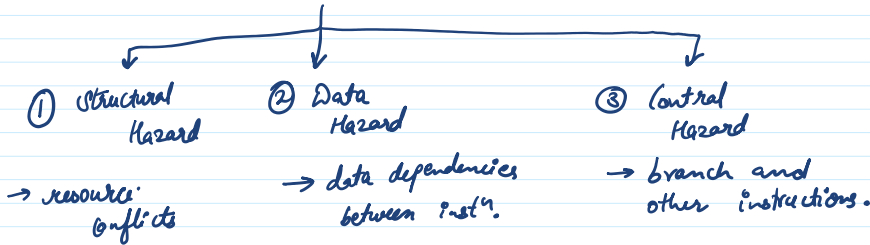 ① Structural Hazard
→ resource conflicts
② Data Hazard
→ data dependencies between instⁿ.
③ Control Hazard
→ branch and other instructions.